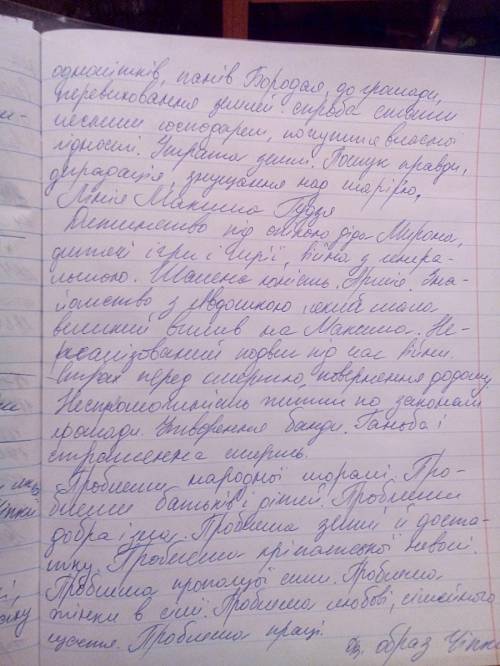 однолітків, панів Бородая, до громади,
перевиховання землі спроба стати
чесним господарем, почуття власної
гідності. Утрата землі. Пошук правди,
деградація, знущання над матірю,
Лінія Максима Гудзя
Дитинство під опікою діда Мирона,
дитячі ігри і мрії, війна з генера-
льшою. Шалена юність. Армія. Зна-
йомство з Явдошкою, який мала
великий вплив на Максима. Не-
реалізований подвиг під час війни.
Страх перед смертю, повернення додому
Неспроможність жити по законам
громади. Створення банди. Ганьба і
страшенна смерть.
Проблеми народної моралі. Про-
блеми батьків і дітей. Проблеми
добра і зла. Проблема землі й доста-
тку. Проблеми кріпатської неволі.
Проблема пропащої сили. Проблема
жінки в сім'ї. Проблема любові, сімейного
щастя. Проблема праці.
образ Чіпки